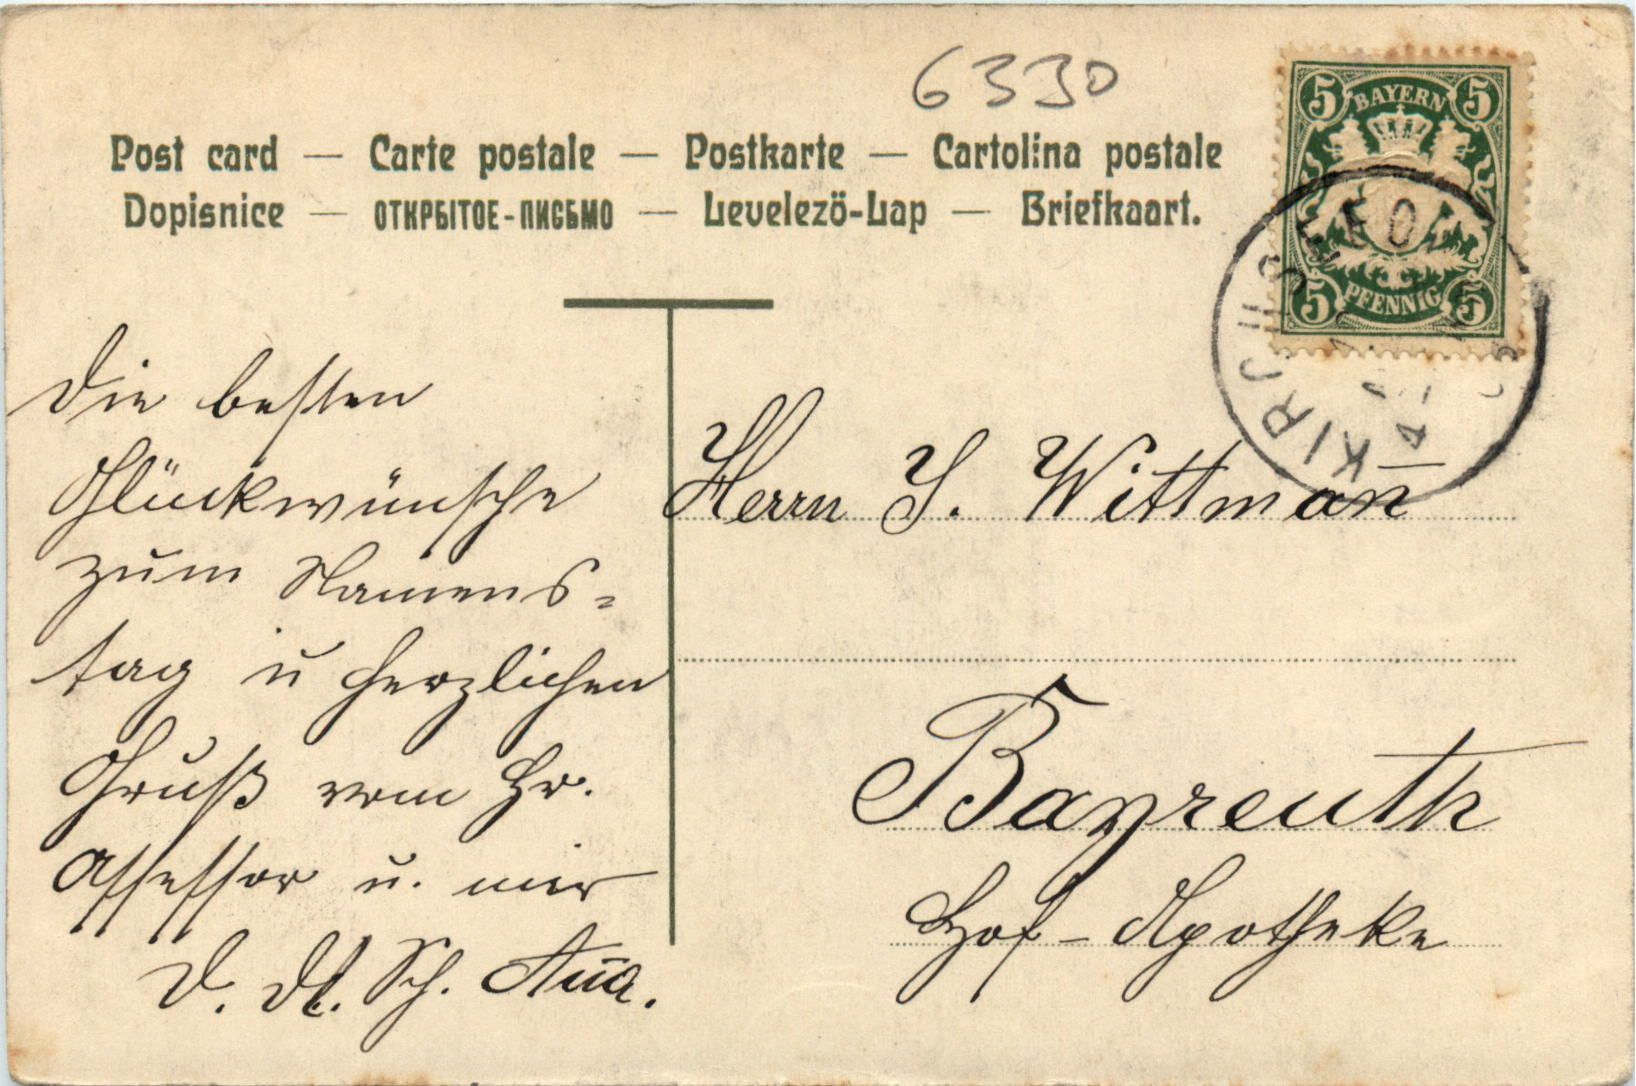 6330
Post card — Carte postale — Postkarte — Cartolina postale
Dopisnice — ОТКРЫТОЕ-ПИСЬМО — Levelezö-Lap — Briefkaart.
5 BAYERN 5
5 PFENNIG 5
KIRCH
Die besten
Glückwünsche
zum Namens-
tag u herzlichen
Gruß vom Hr.
Assessor u. mir
D. Sch. Anna.
Herrn J. Wittman̄
Bayreuth
Hof-Apotheke